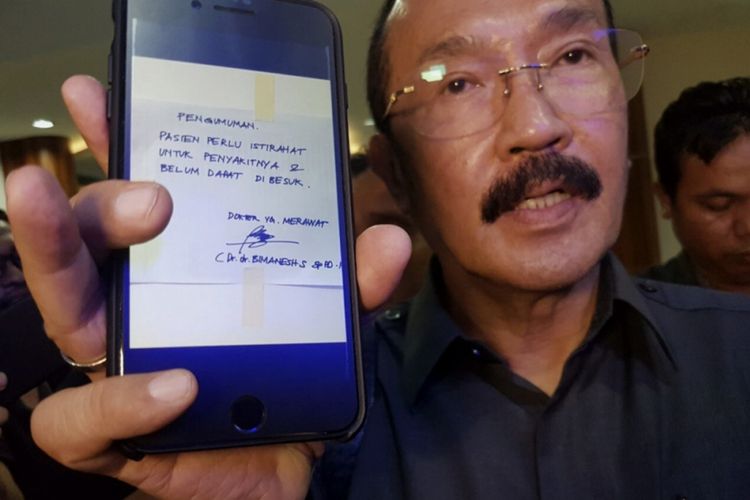 PENGUMUMAN.
PASIEN PERLU ISTIRAHAT
UNTUK PENYAKITNYA &
BELUM DAPAT DIBESUK.
DOKTER YG. MERAWAT
( Dr. dr. BIMANESH S SpPD-